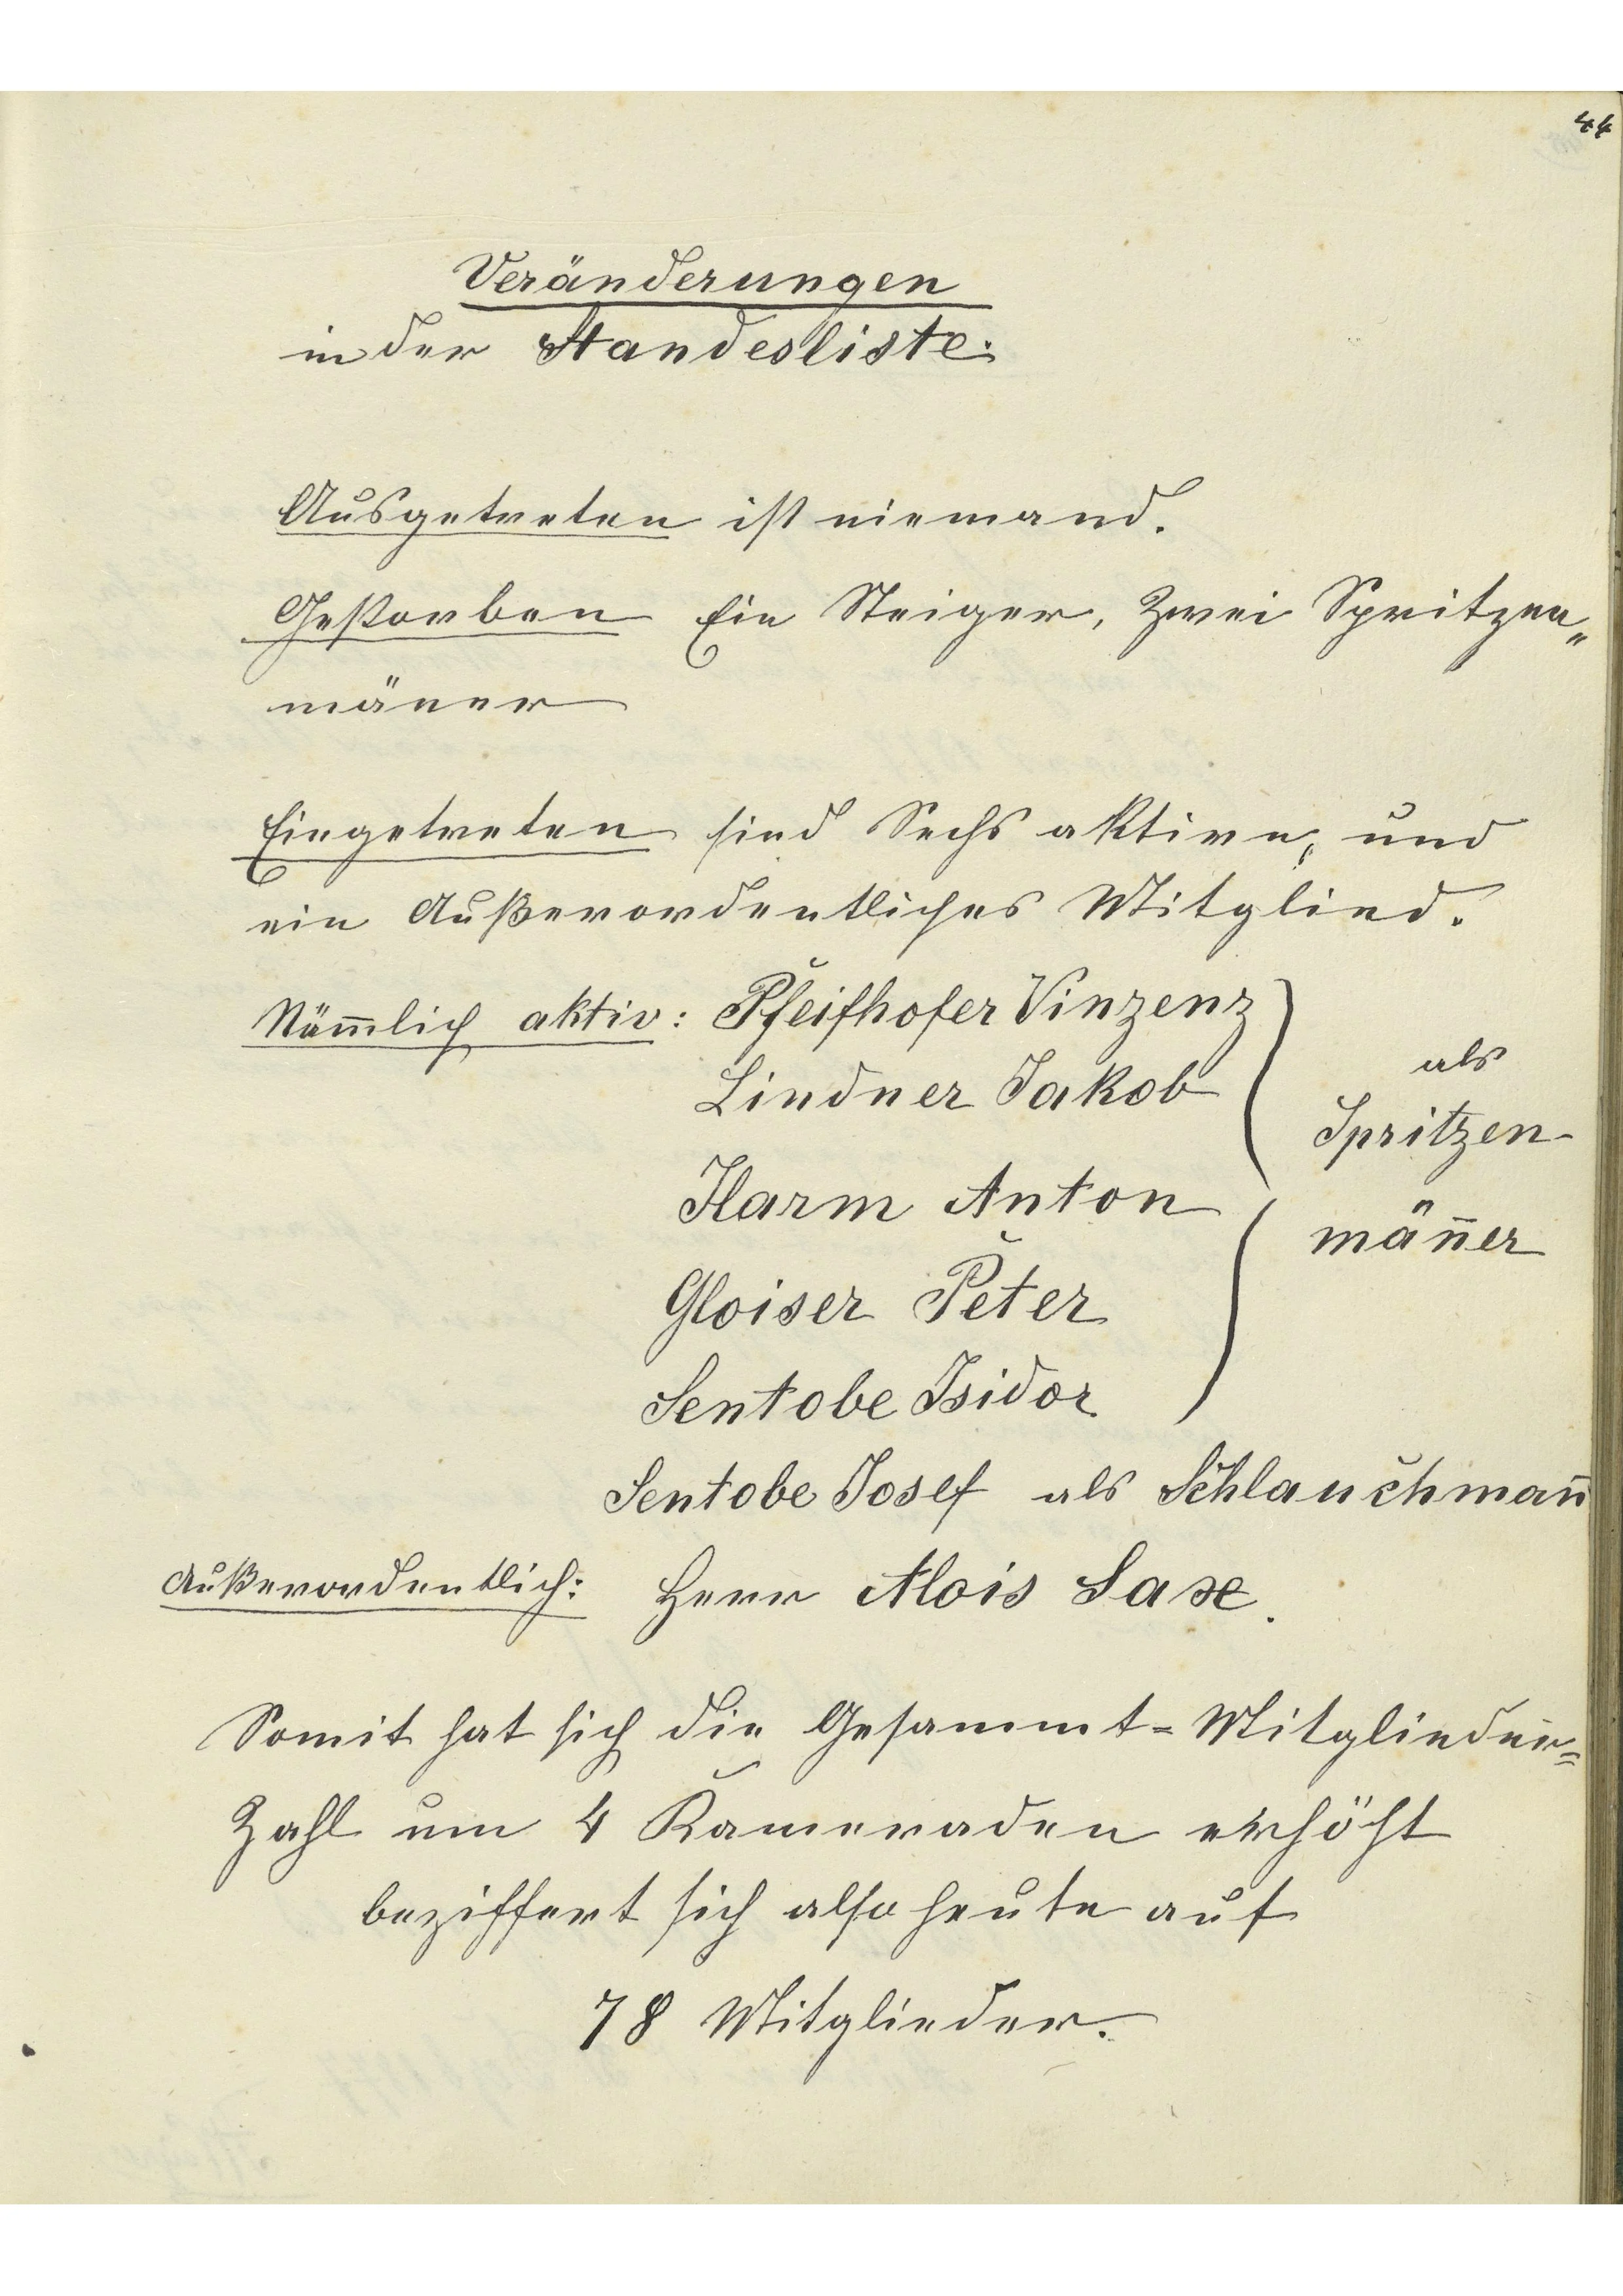 44
Veränderungen
in der Standesliste.
Ausgetreten ist niemand.
Gestorben Ein Steiger, Zwei Spritzen„
mäner
Eingetreten sind Sechs aktive, und
ein Außerordentliches Mitglied.
Näm̅lich aktiv: Pfeifhofer Vinzenz
Lindner Jakob
als
Spritzen-
Harm Anton
män̅er
Gloiser Peter
Sentobe Isidor
Sentobe Josef als Schlauchman̅
Außerordentlich: Herr Alois Saxe.
Somit hat sich die Gesammt=Mitglieder=
Zahl um 4 Kameraden erhöht
beziffert sich also heute auf
78 Mitglieder.